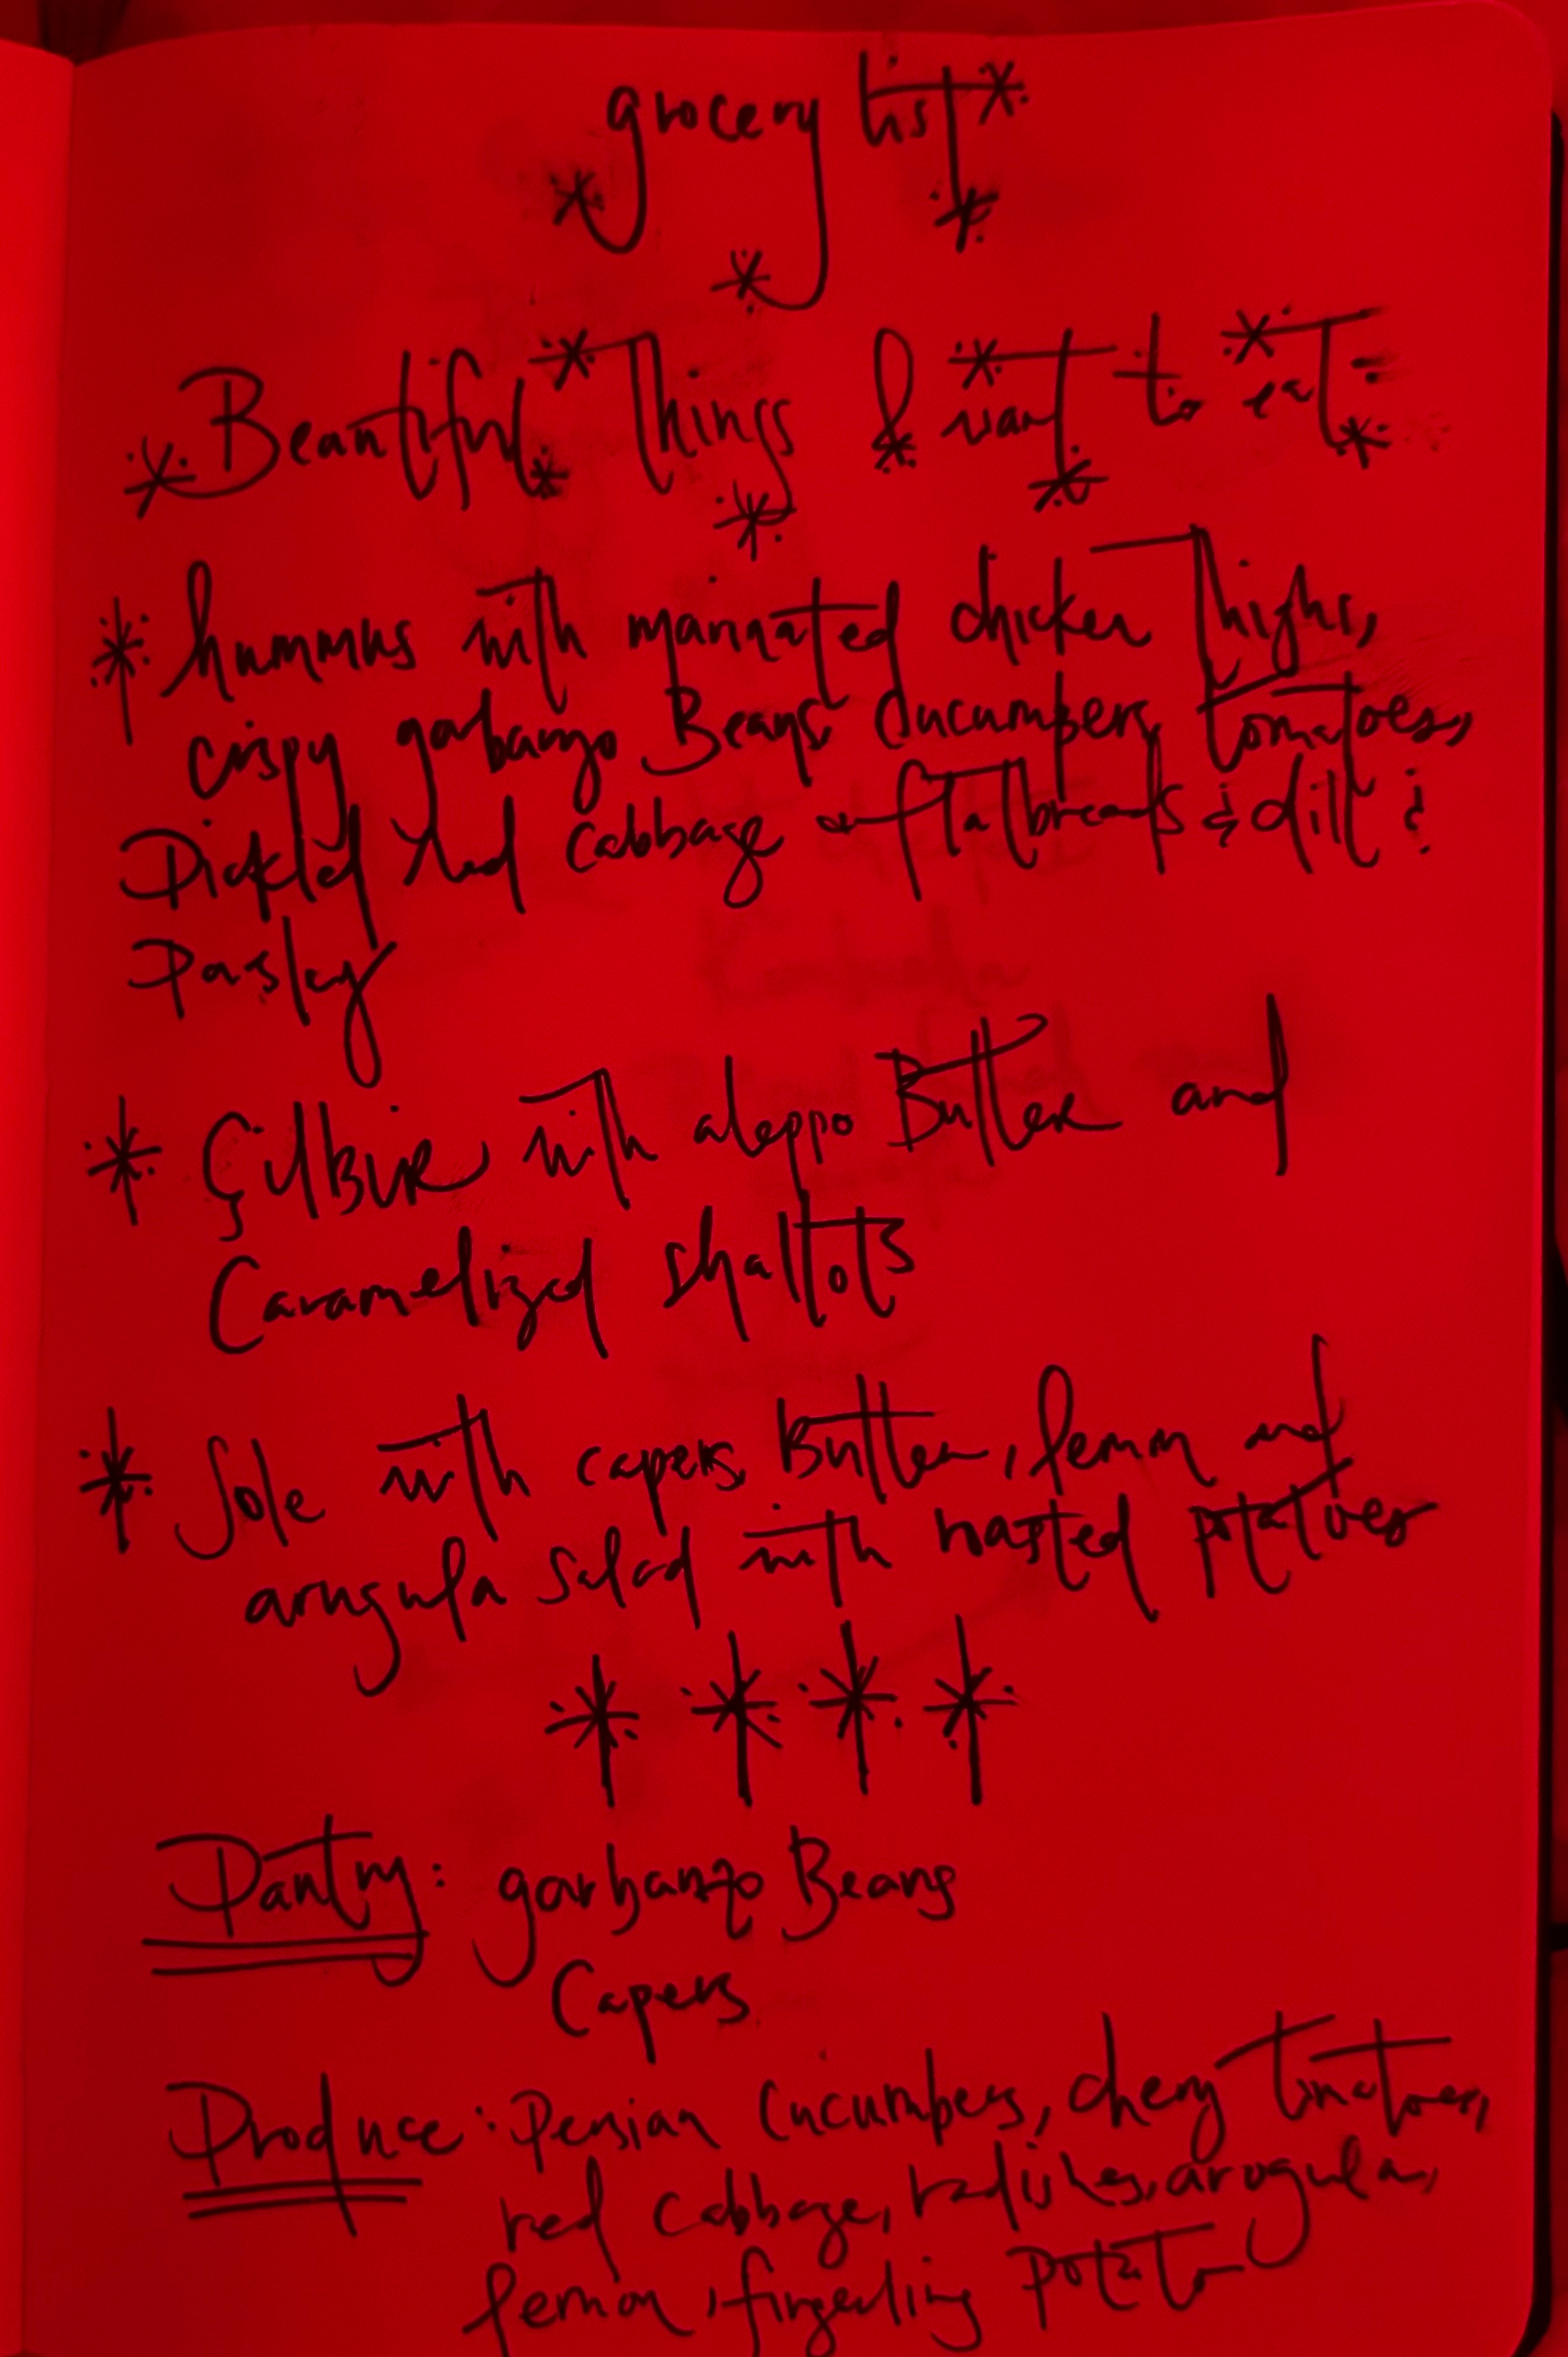 grocery list
Beautiful Things I want to eat
hummus with marinated chicken thighs,
crispy garbanzo Beans cucumbers, tomatoes,
Pickled red cabbage & flatbreads & dill &
Parsley
ÇılBIR with aleppo Butter and
Caramelized shallots
Sole with capers, Butter, lemon and
arugula salad with roasted potatoes
Pantry: garbanzo Beans
Capers
Produce: Persian Cucumbers, cherry tomatoes,
red cabbage, radishes, arugula,
lemon, fingerling potato